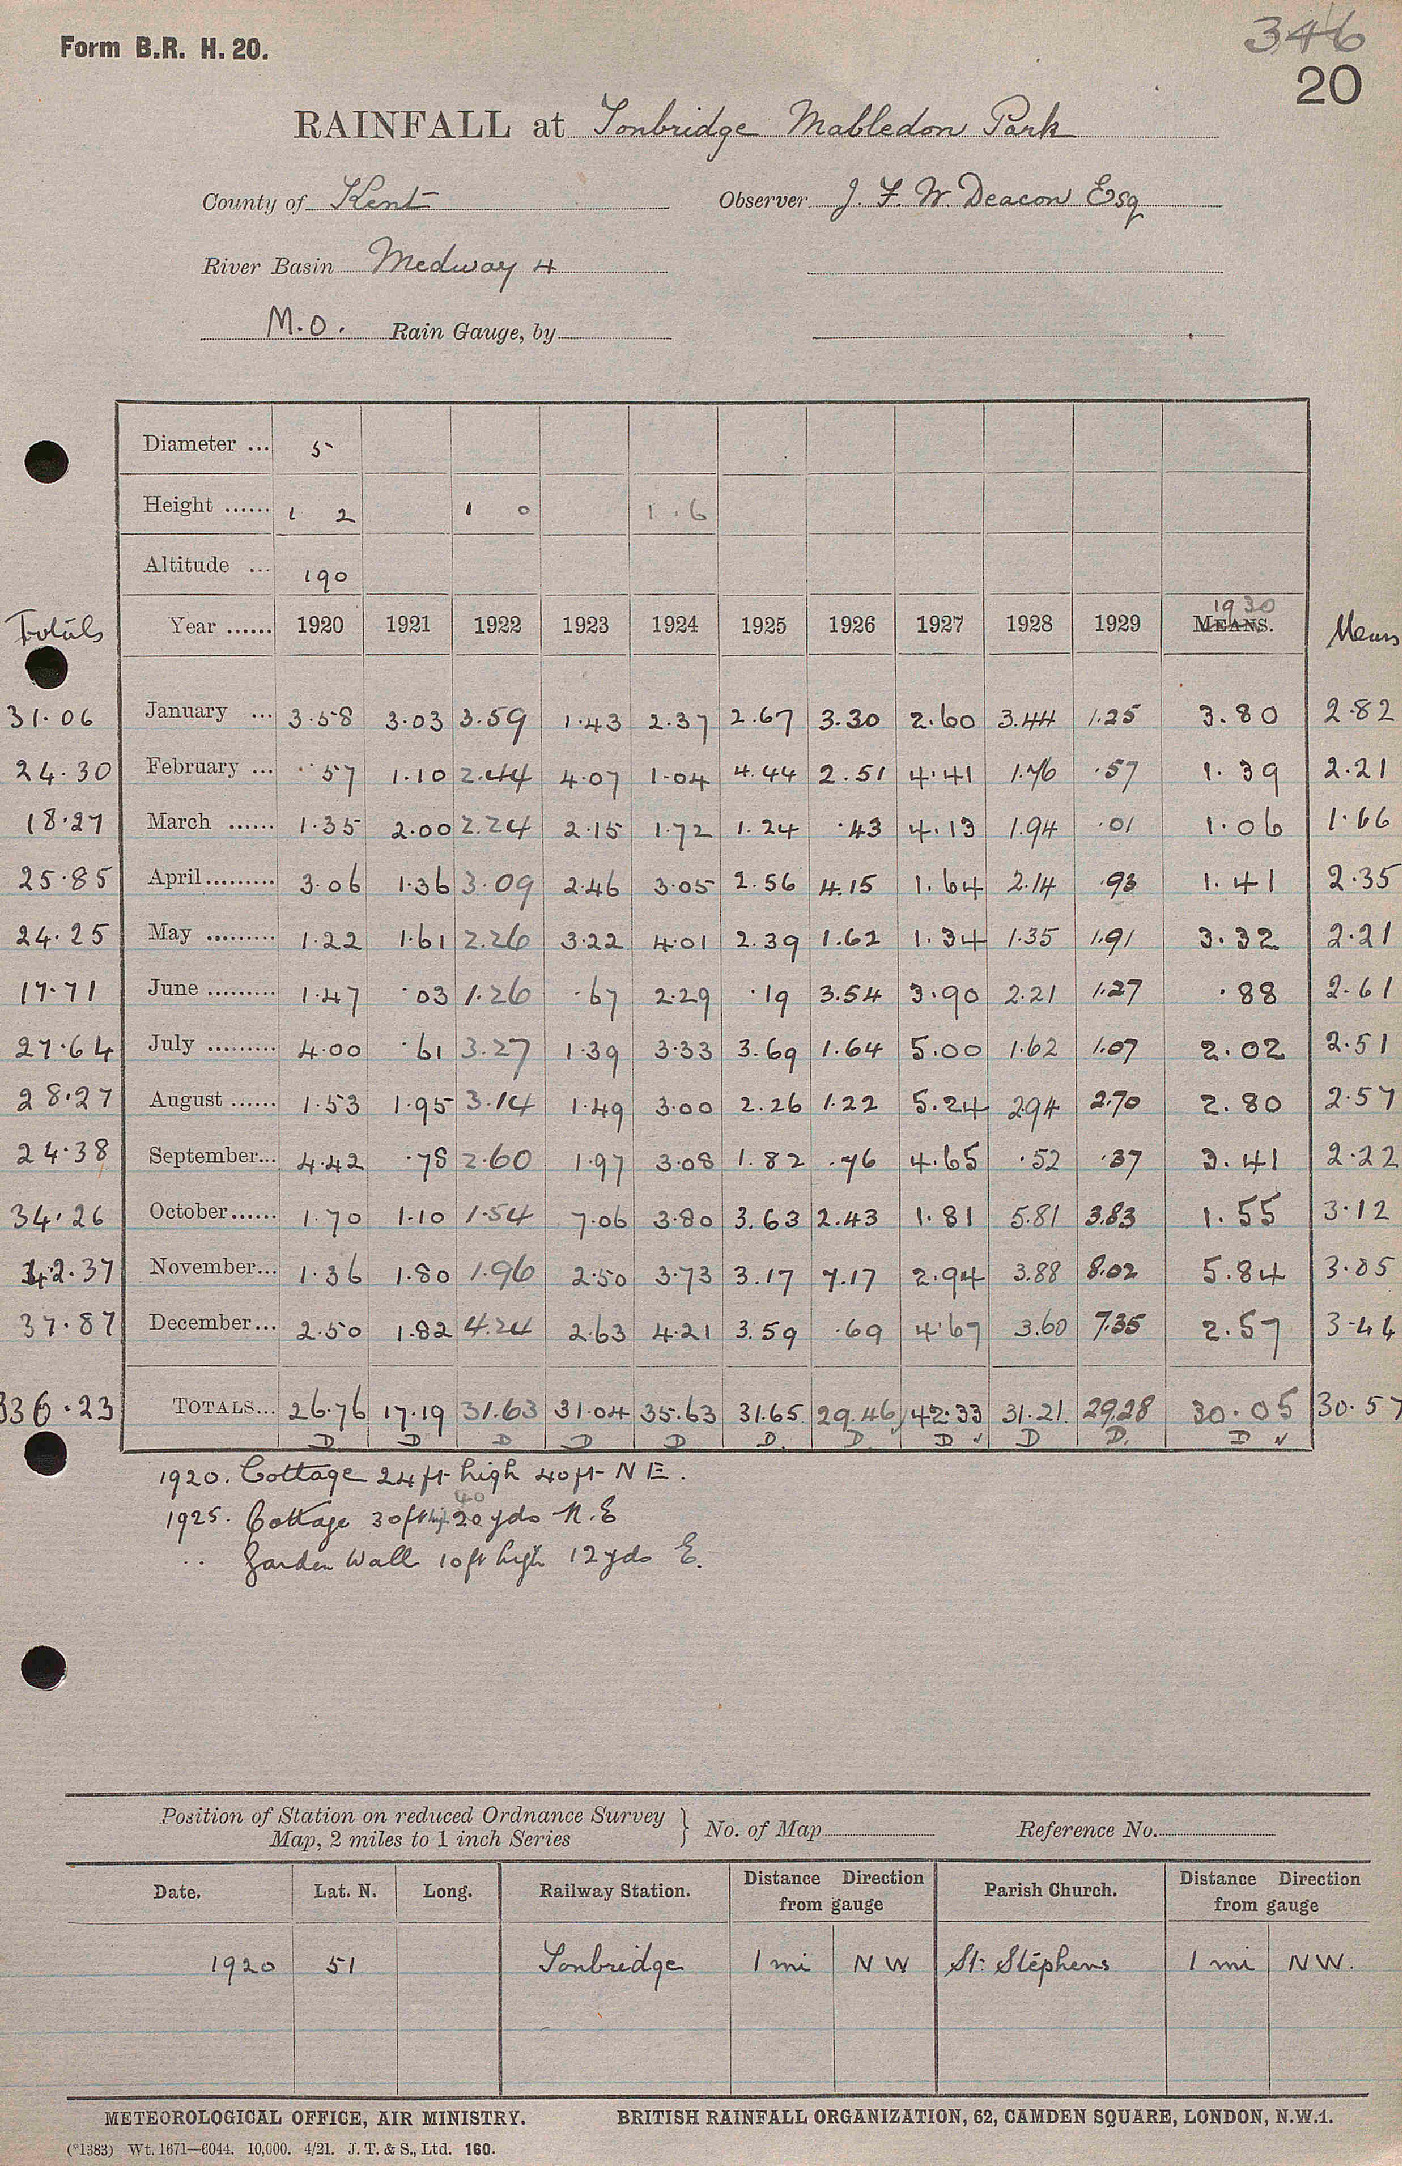 Form B.R. H. 20.
346
20
RAINFALL at Tonbridge Mabledon Park
County of Kent Observer J. F. W. Deacon Esq
River Basin Medway 4
M.O. Rain Gauge, by
Diameter ... 5
Height ...... 1 2 1 0 1.6
Altitude ... 190
Totals Year ...... 1920 1921 1922 1923 1924 1925 1926 1927 1928 1929 1930 MEANS. Means
31.06 January ... 3.58 3.03 3.59 1.43 2.37 2.67 3.30 2.60 3.44 1.25 3.80 2.82
24.30 February ... .57 1.10 2.44 4.07 1.04 4.44 2.51 4.41 1.76 .57 1.39 2.21
18.27 March ...... 1.35 2.00 2.24 2.15 1.72 1.24 .43 4.13 1.94 .01 1.06 1.66
25.85 April......... 3.06 1.36 3.09 2.46 3.05 2.56 4.15 1.64 2.14 .93 1.41 2.35
24.25 May ......... 1.22 1.61 2.26 3.22 4.01 2.39 1.62 1.34 1.35 1.91 3.32 2.21
17.71 June ......... 1.47 .03 1.26 .67 2.29 .19 3.54 3.90 2.21 1.27 .88 2.61
27.64 July ......... 4.00 .61 3.27 1.39 3.33 3.69 1.64 5.00 1.62 1.07 2.02 2.51
28.27 August ...... 1.53 1.95 3.14 1.49 3.00 2.26 1.22 5.24 2.94 2.70 2.80 2.57
24.38 September... 4.42 .78 2.60 1.97 3.08 1.82 .76 4.65 .52 .37 3.41 2.22
34.26 October...... 1.70 1.10 1.54 7.06 3.80 3.63 2.43 1.81 5.81 3.83 1.55 3.12
42.37 November... 1.36 1.80 1.96 2.50 3.73 3.17 7.17 2.94 3.88 8.02 5.84 3.85
37.87 December... 2.50 1.82 4.24 2.63 4.21 3.59 .69 4.67 3.60 7.35 2.57 3.44
336.23 TOTALS... 26.76 17.19 31.63 31.04 35.63 31.65 29.46 42.33 31.21 29.28 30.05 30.57
D D D D D D. D. D ✓ D D. D ✓
1920. Cottage 24ft high 40ft N E.
40
1925. Cottage 30ft high 20 yds N.E
.. Garden Wall 10ft high 12 yds E.
Position of Station on reduced Ordnance Survey
Map, 2 miles to 1 inch Series } No. of Map Reference No.
Date. Lat. N. Long. Railway Station. Distance Direction from gauge Parish Church. Distance Direction from gauge
1920 51 Tonbridge 1 mi N W St: Stephens 1 mi N W.
METEOROLOGICAL OFFICE, AIR MINISTRY. BRITISH RAINFALL ORGANIZATION, 62, CAMDEN SQUARE, LONDON, N.W.1.
(*1383) Wt. 1671—6044. 10,000. 4/21. J. T. & S., Ltd. 160.